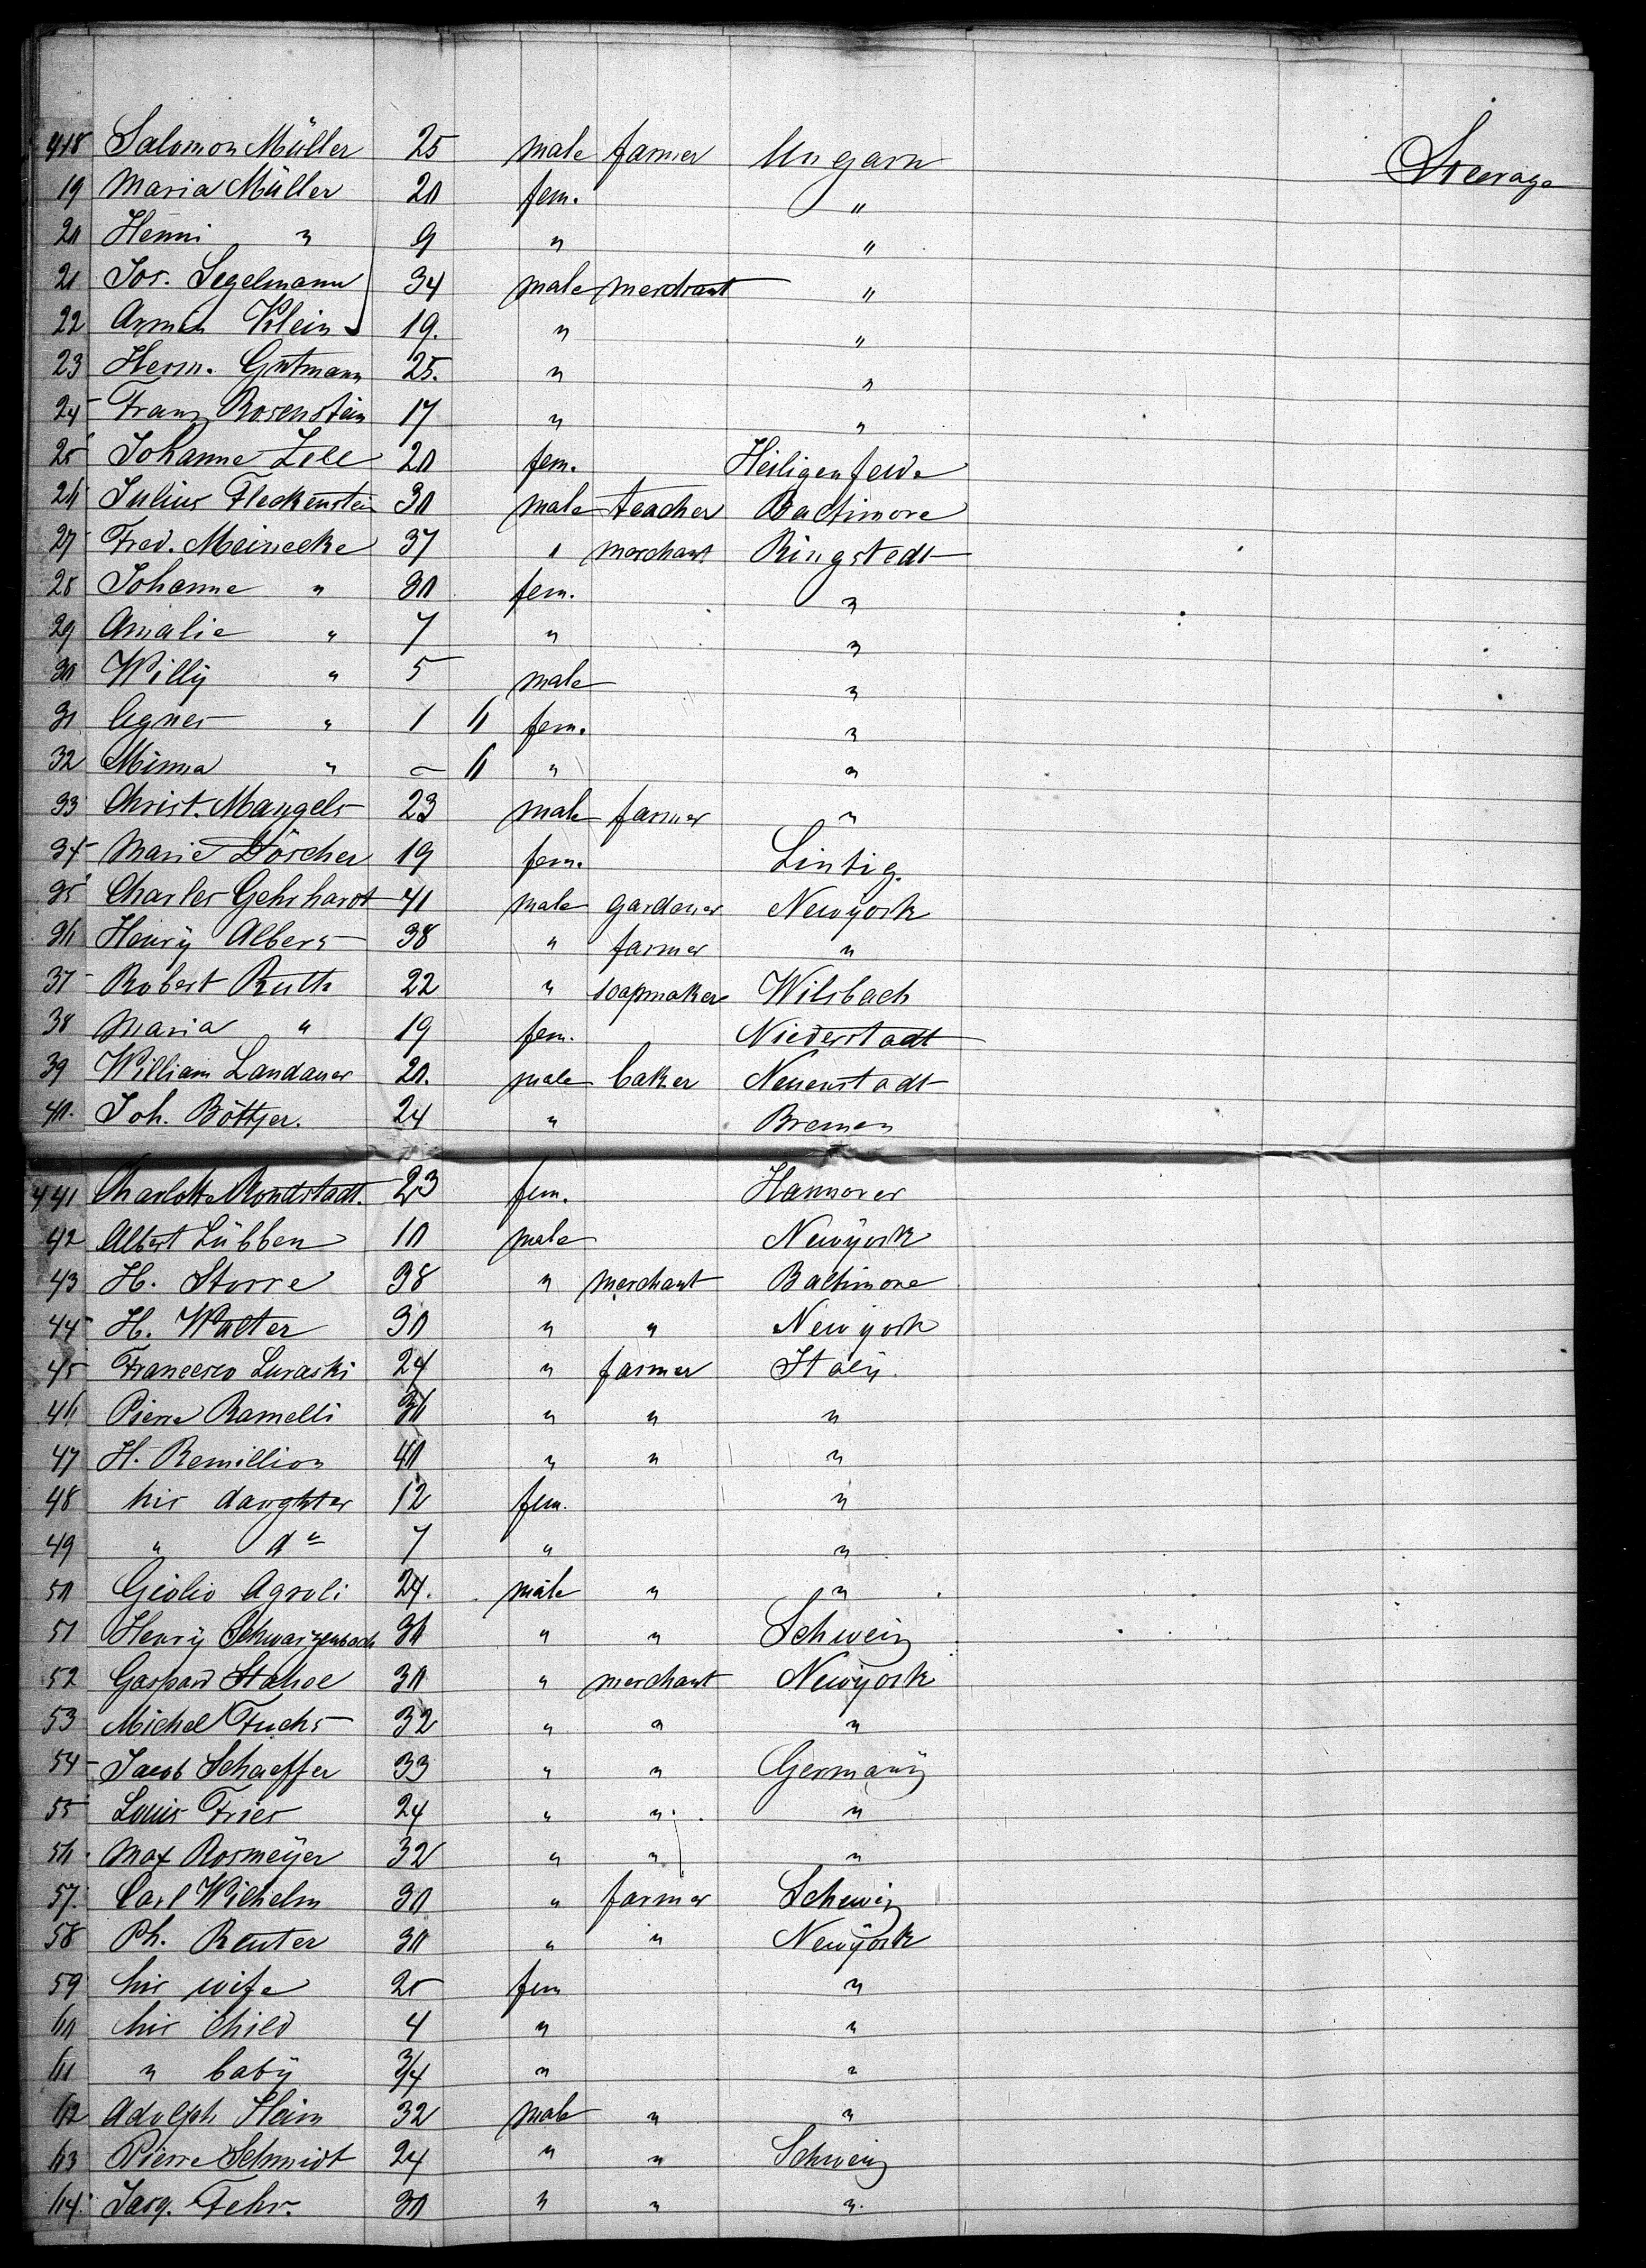 418 Salomon Müller 25 male farmer Ungarn Steerage
19 Maria Müller 20 fem. "
20 Henni " 9 " "
21 Jos. Segelmann 34 male merchant "
22 Armin Klein 19. " "
23 Herm. Gutmann 25. " "
24 Franz Rosenstein 17 " "
25 Johanne Zell 20 fem. Heiligenfelde
26 Julius Fleckenstein 30 male teacher Baltimore
27 Fred. Meinecke 37 " merchant Ringstedt
28 Johanne " 30 fem. "
29 Amalie " 7 " "
30 Willÿ " 5 male "
31 Agnes " 1 6 fem. "
32 Minna " – 6 " "
33 Christ. Mangels 23 male farmer "
34 Marie Dörscher 19 fem. Lintig.
35 Charles Gehrhardt 41 male gardener Newÿork
36 Henrÿ Albers 38 " farmer "
37 Robert Ruth 22 " soapmaker Wilsbach
38 Maria " 19 fem. Niederstadt
39 William Landauer 20. male baker Neuenstadt
40. Joh. Böttjer. 24 " Bremen
441 Charlotte Rondstadt. 23 fem. Hannover
42 Albert Lübben 10 male Newÿork
43 H. Storre 38 " merchant Baltimore
44 H. Walter 30 " " Newÿork
45 Francesco Luraski 24 " farmer Italÿ.
46 Pierre Ramelli 36 " " "
47 H. Remillion 40 " " "
48 his daughter 12 fem. "
49 " do 7 " "
50 Giolio Agroli 24. male " "
51 Henrÿ Schwarzenbach 36 " " Schweiz
52 Gaspard Stahel 30 " merchant Newÿork
53 Michel Fuchs 32 " " "
54 Jacob Schaeffer 33 " " Germanÿ
55 Louis Fries 24 " " "
56. Max Rosmeÿer 32 " " "
57. Carl Wilhelm 30 " farmer Schweiz
58 Ph. Reuter 30 " " Newÿork
59 his wife 25 fem "
60 his child 4 " "
61 " babÿ 3/4 " "
62 Adolph Heim 32 male " "
63 Pierre Schmidt 24 " " Schweiz
64. Jacq. Fehr. 30 " " "